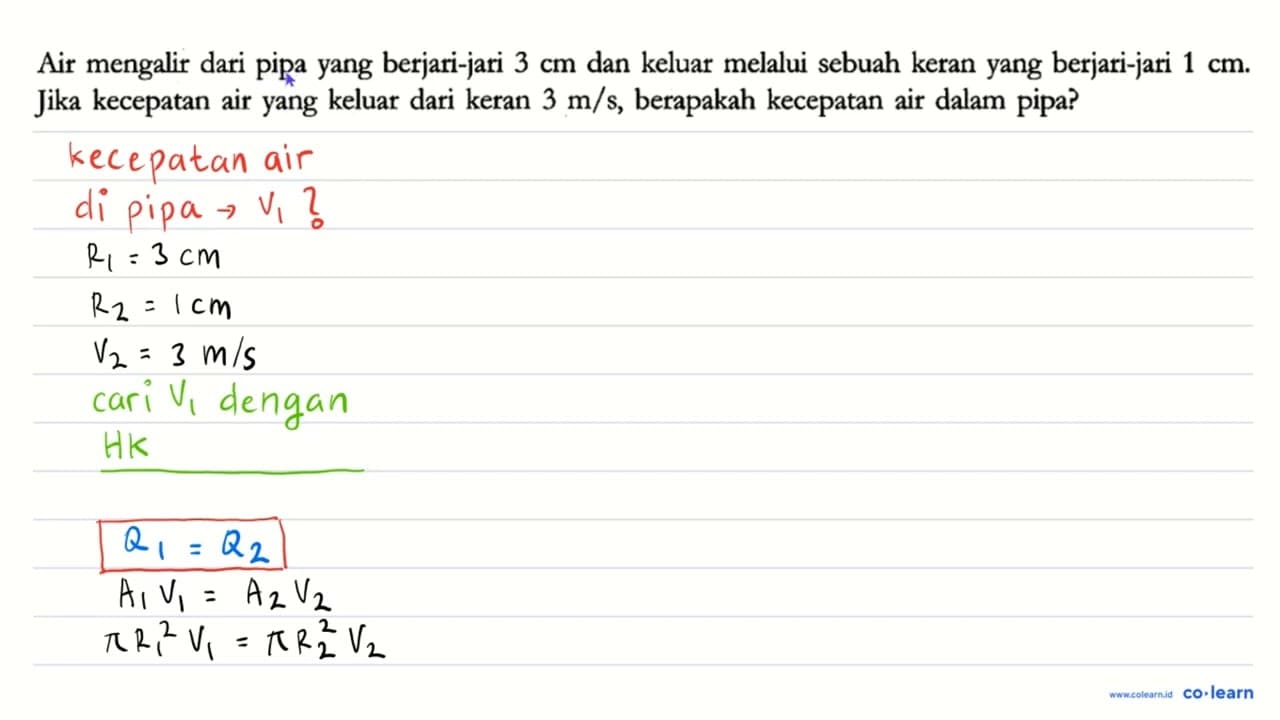 Air mengalir dari pipa yang berjari-jari 3 cm dan keluar melalui sebuah keran yang berjari-jari 1 cm.
Jika kecepatan air yang keluar dari keran 3 m/s, berapakah kecepatan air dalam pipa?
kecepatan air
di pipa → V₁ ?
R₁ = 3 cm
R₂ = 1 cm
V₂ = 3 m/s
cari V₁ dengan
HK
Q₁ = Q₂
A₁ V₁ = A₂ V₂
π R₁² V₁ = π R₂² V₂
www.colearn.id co·learn